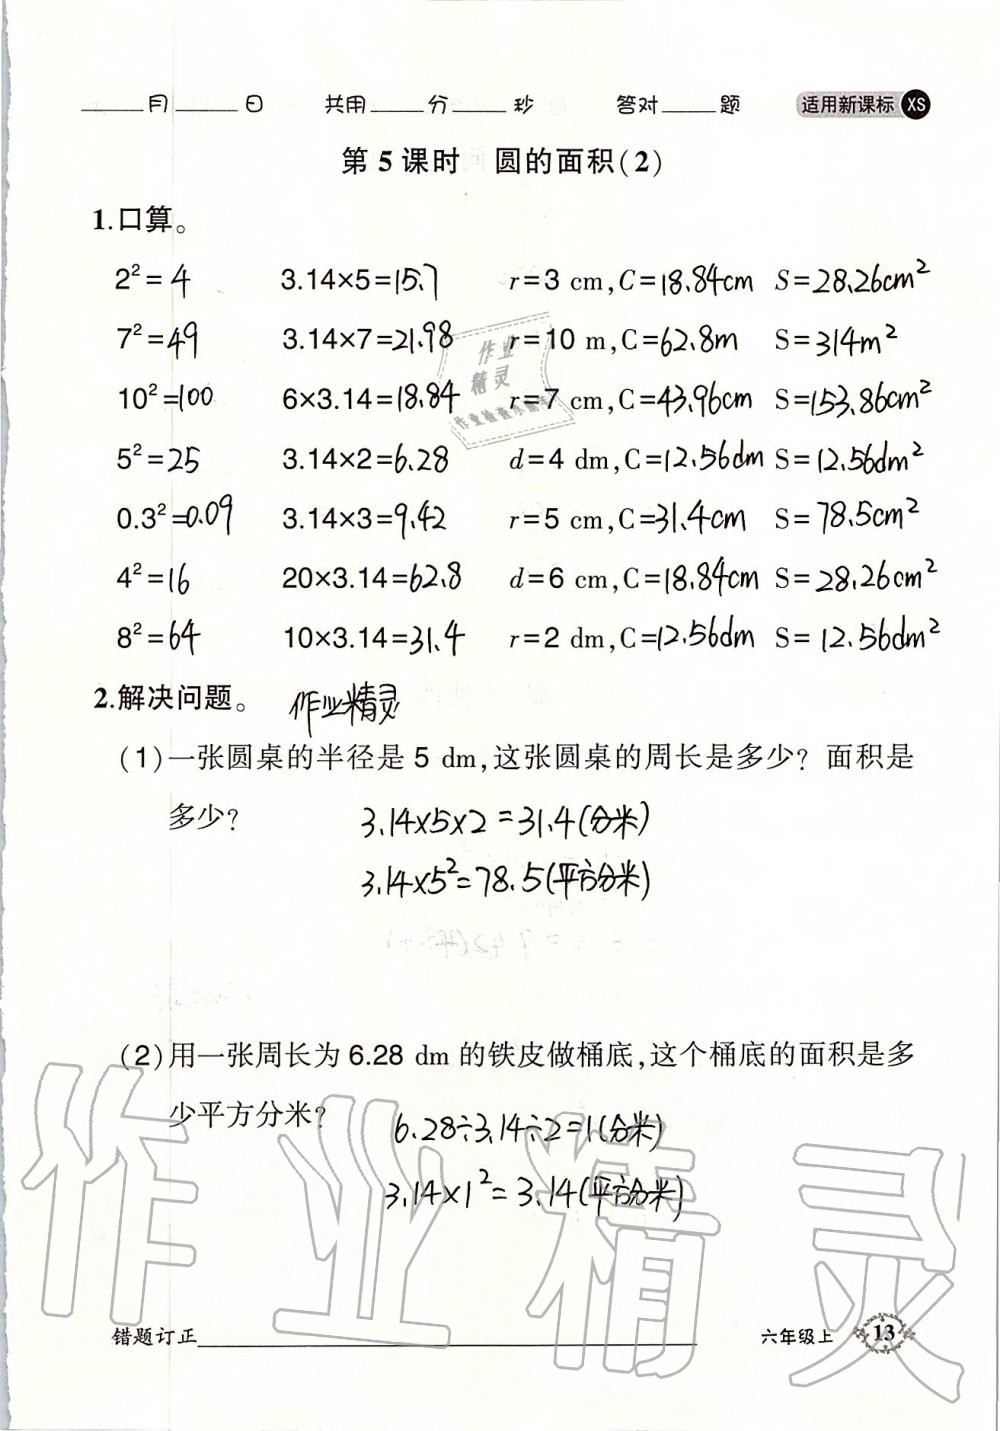 ____月____日 共用____分____秒 答对____题 适用新课标 XS
第5课时 圆的面积(2)
1.口算。
2²=4 3.14×5=15.7 r=3 cm,C=18.84cm S=28.26cm²
7²=49 3.14×7=21.98 r=10 m,C=62.8m S=314m²
10²=100 6×3.14=18.84 r=7 cm,C=43.96cm S=153.86cm²
5²=25 3.14×2=6.28 d=4 dm,C=12.56dm S=12.56dm²
0.3²=0.09 3.14×3=9.42 r=5 cm,C=31.4cm S=78.5cm²
4²=16 20×3.14=62.8 d=6 cm,C=18.84cm S=28.26cm²
8²=64 10×3.14=31.4 r=2 dm,C=12.56dm S=12.56dm²
作业
精灵
2.解决问题。 作业精灵
(1)一张圆桌的半径是5 dm,这张圆桌的周长是多少？面积是
多少？ 3.14×5×2=31.4(分米)
3.14×5²=78.5(平方分米)
(2)用一张周长为6.28 dm的铁皮做桶底,这个桶底的面积是多
少平方分米？ 6.28÷3.14÷2=1(分米)
3.14×1²=3.14(平方分米)
作业精灵
错题订正____ 六年级上 13